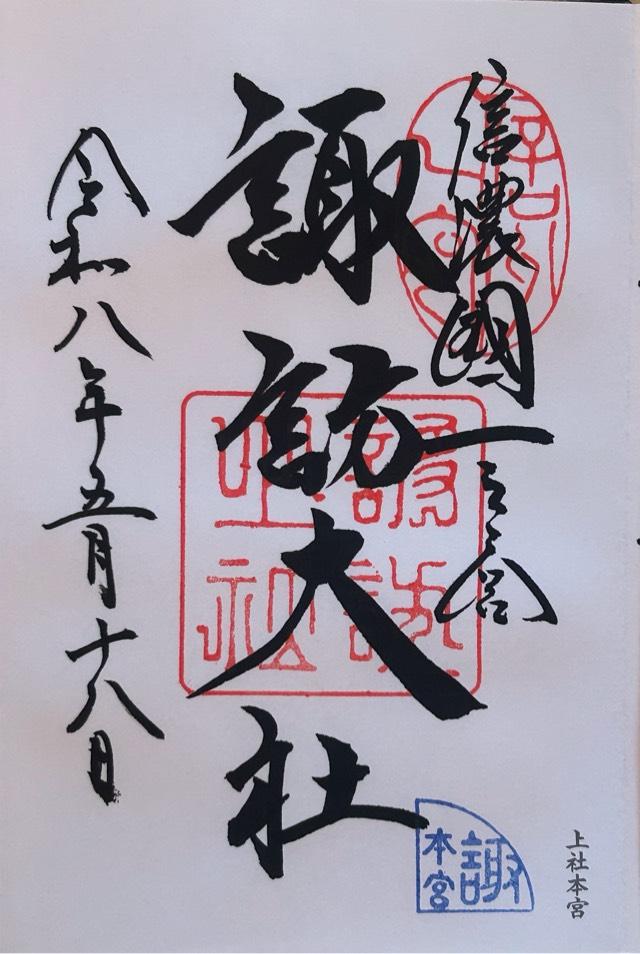 信濃國一之宮
諏訪大社
令和八年五月十八日
諏
本宮
上社本宮